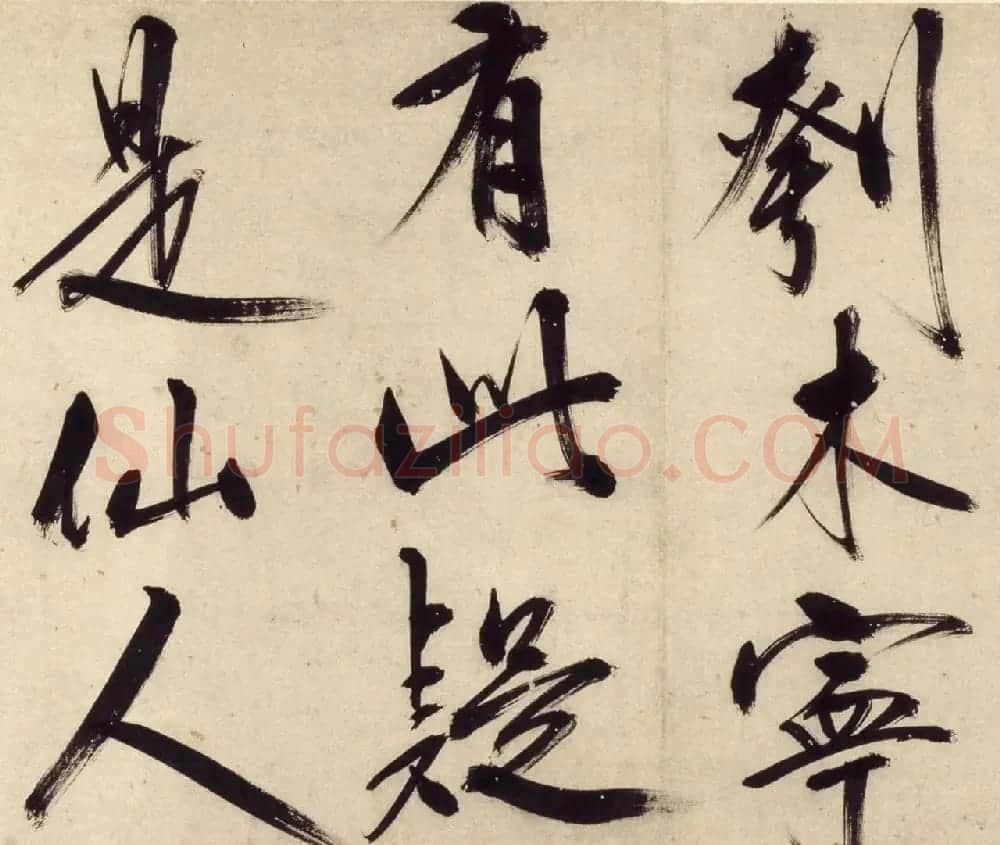 刳木寧
有此疑
是仙人
Shufaziliao.COM